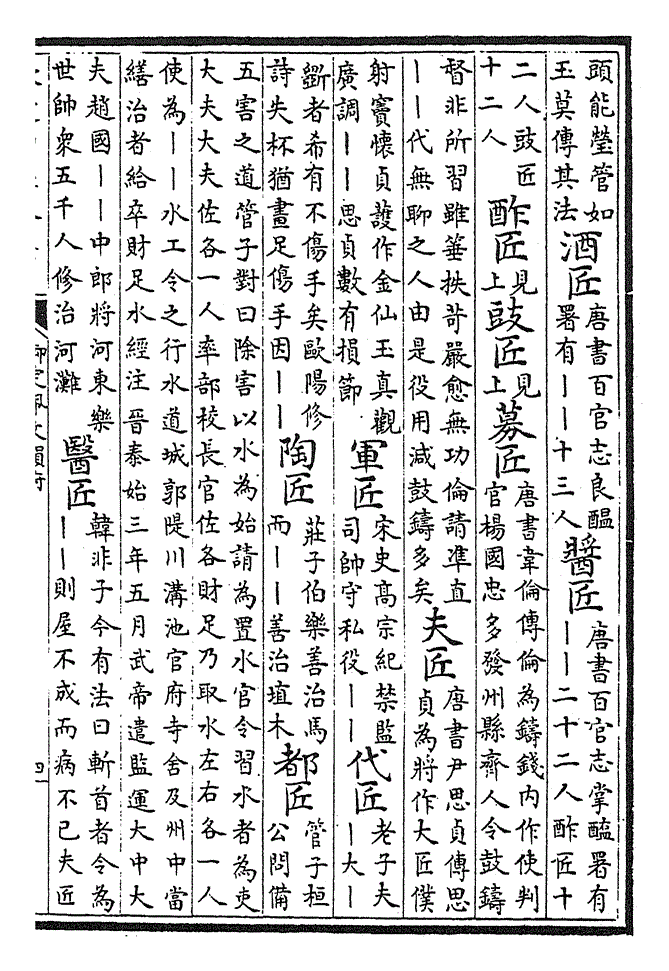 頭能瑩管如
玉莫傳其法
酒匠
唐書百官志良醞
署有丨丨十三人
醬匠
唐書百官志掌醢署有
丨丨二十二人酢匠十
二人豉匠
十二人
酢匠
見
上
豉匠
見
上
募匠
唐書韋倫傳倫為鑄錢内作使判
官楊國忠多發州縣齊人令鼓鑄
督非所習雖箠抶苛嚴愈無功倫請準直
丨丨代無聊之人由是役用減鼓鑄多矣
夫匠
唐書尹思貞傳思
貞為將作大匠僕
射竇懷貞護作金仙玉真觀
廣調丨丨思貞數有損節
軍匠
宋史高宗紀禁監
司帥守私役丨丨
代匠
老子夫
丨大丨
斵者希有不傷手矣歐陽修
詩失杯猶畫足傷手因丨丨
陶匠
莊子伯樂善治馬
而丨丨善治埴木
都匠
管子桓
公問備
五害之道管子對曰除害以水為始請為置水官令習水者為吏
大夫大夫佐各一人率部校長官佐各財足乃取水左右各一人
使為丨丨水工令之行水道城郭隄川溝池官府寺舍及州中當
繕治者給卒財足水經注晉泰始三年五月武帝遣監運大中大
夫趙國丨丨中郎將河東樂
世帥衆五千人修治河灘
醫匠
韓非子今有法曰斬首者令為
丨丨則屋不成而病不已夫匠
四